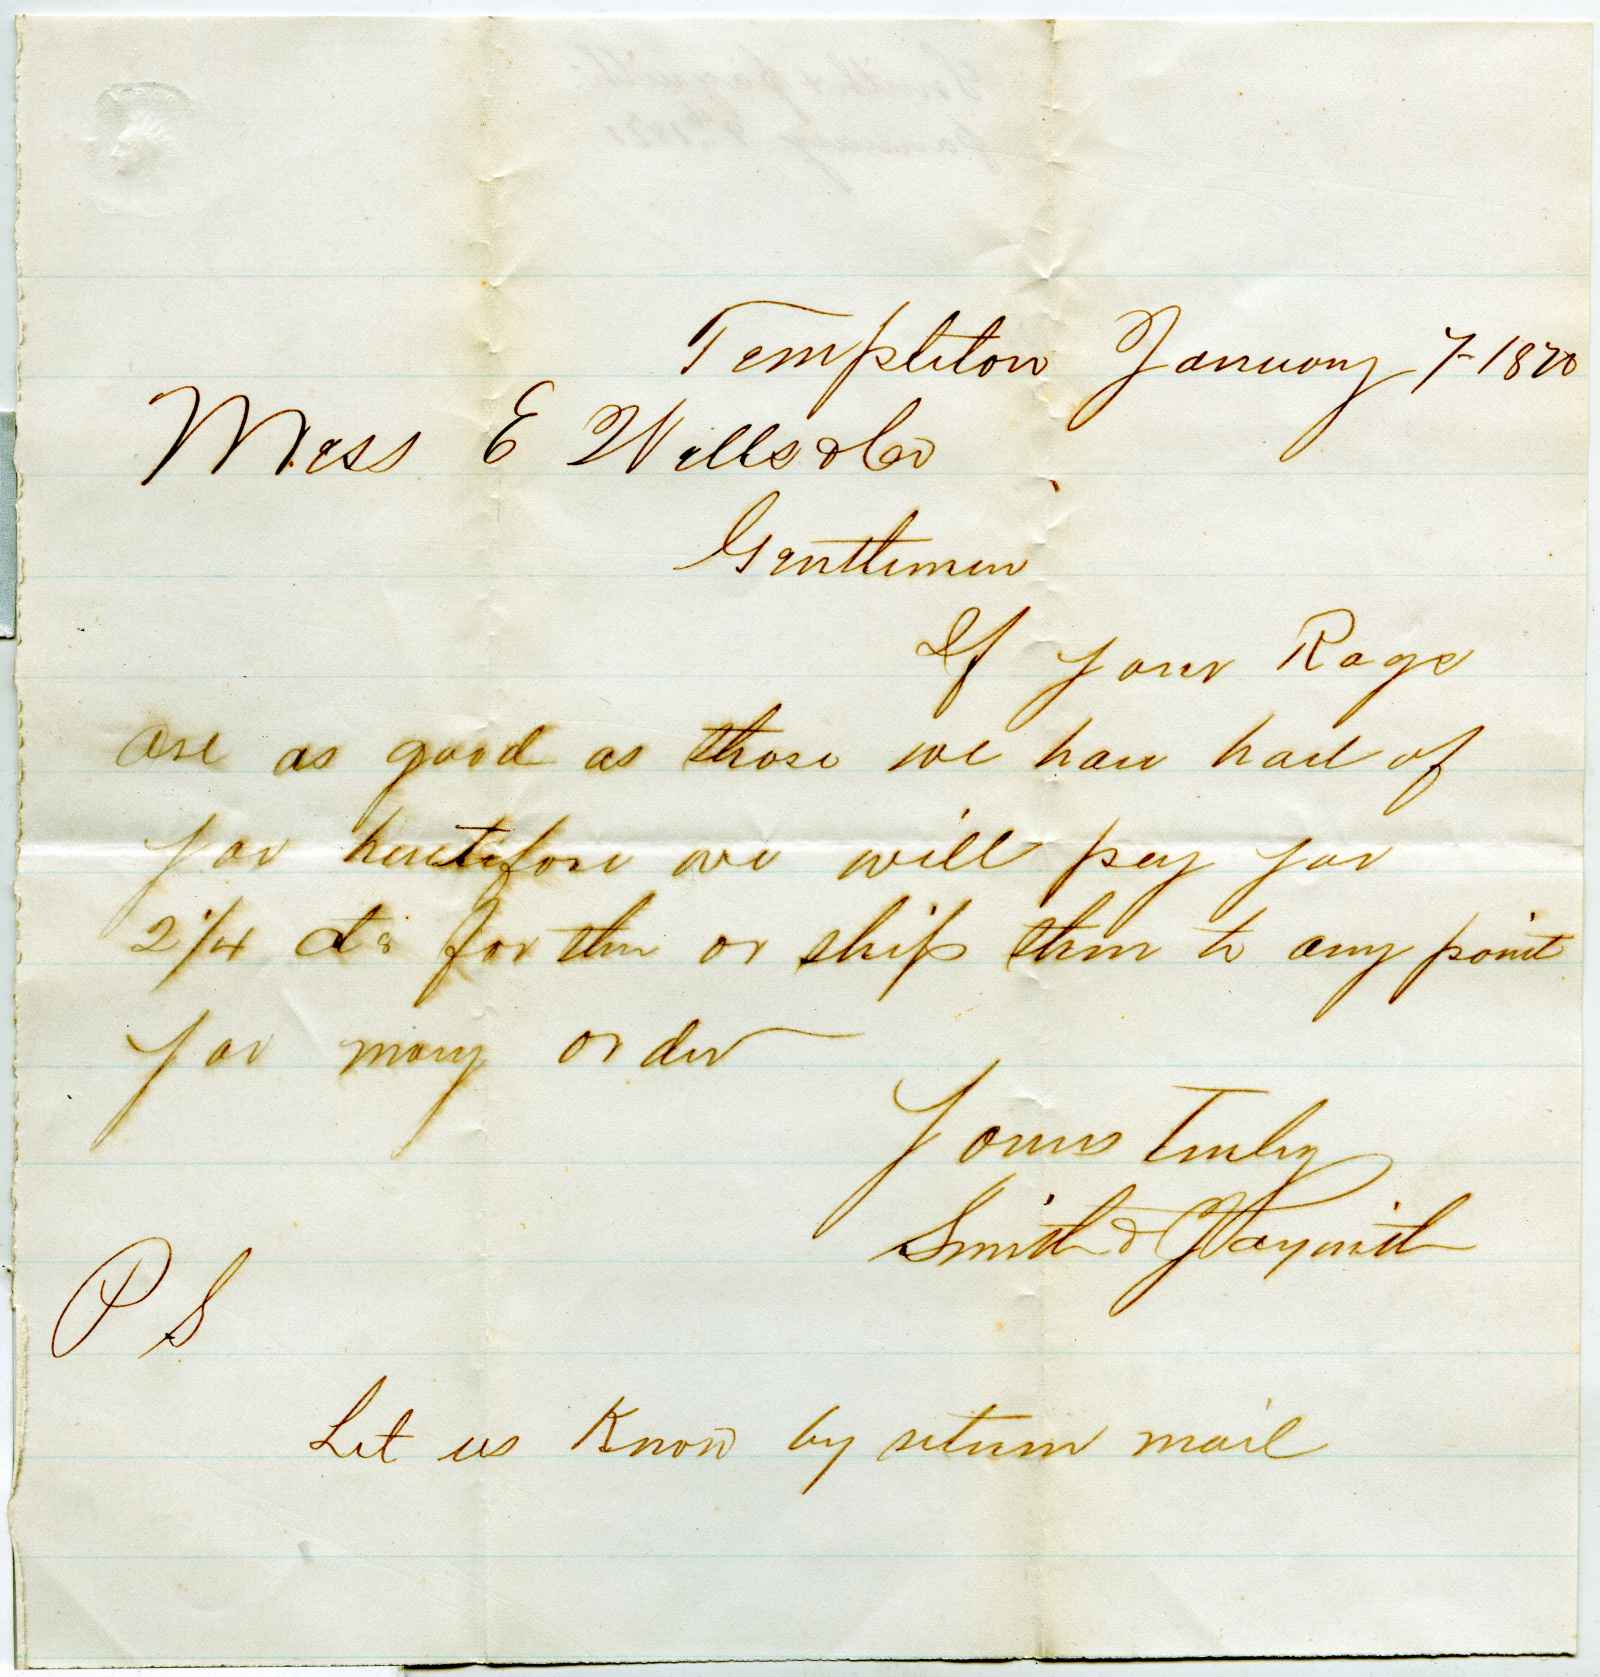 Templeton January 7-1870
Mess E Wells & Co
Gentlemen
If your Rags
are as good as those we have had of
you heretofore we will pay you
2 1/4 cts for them or ship them to any point
you may order
Yours Truly
Smith &
P S
Let us Know by return mail